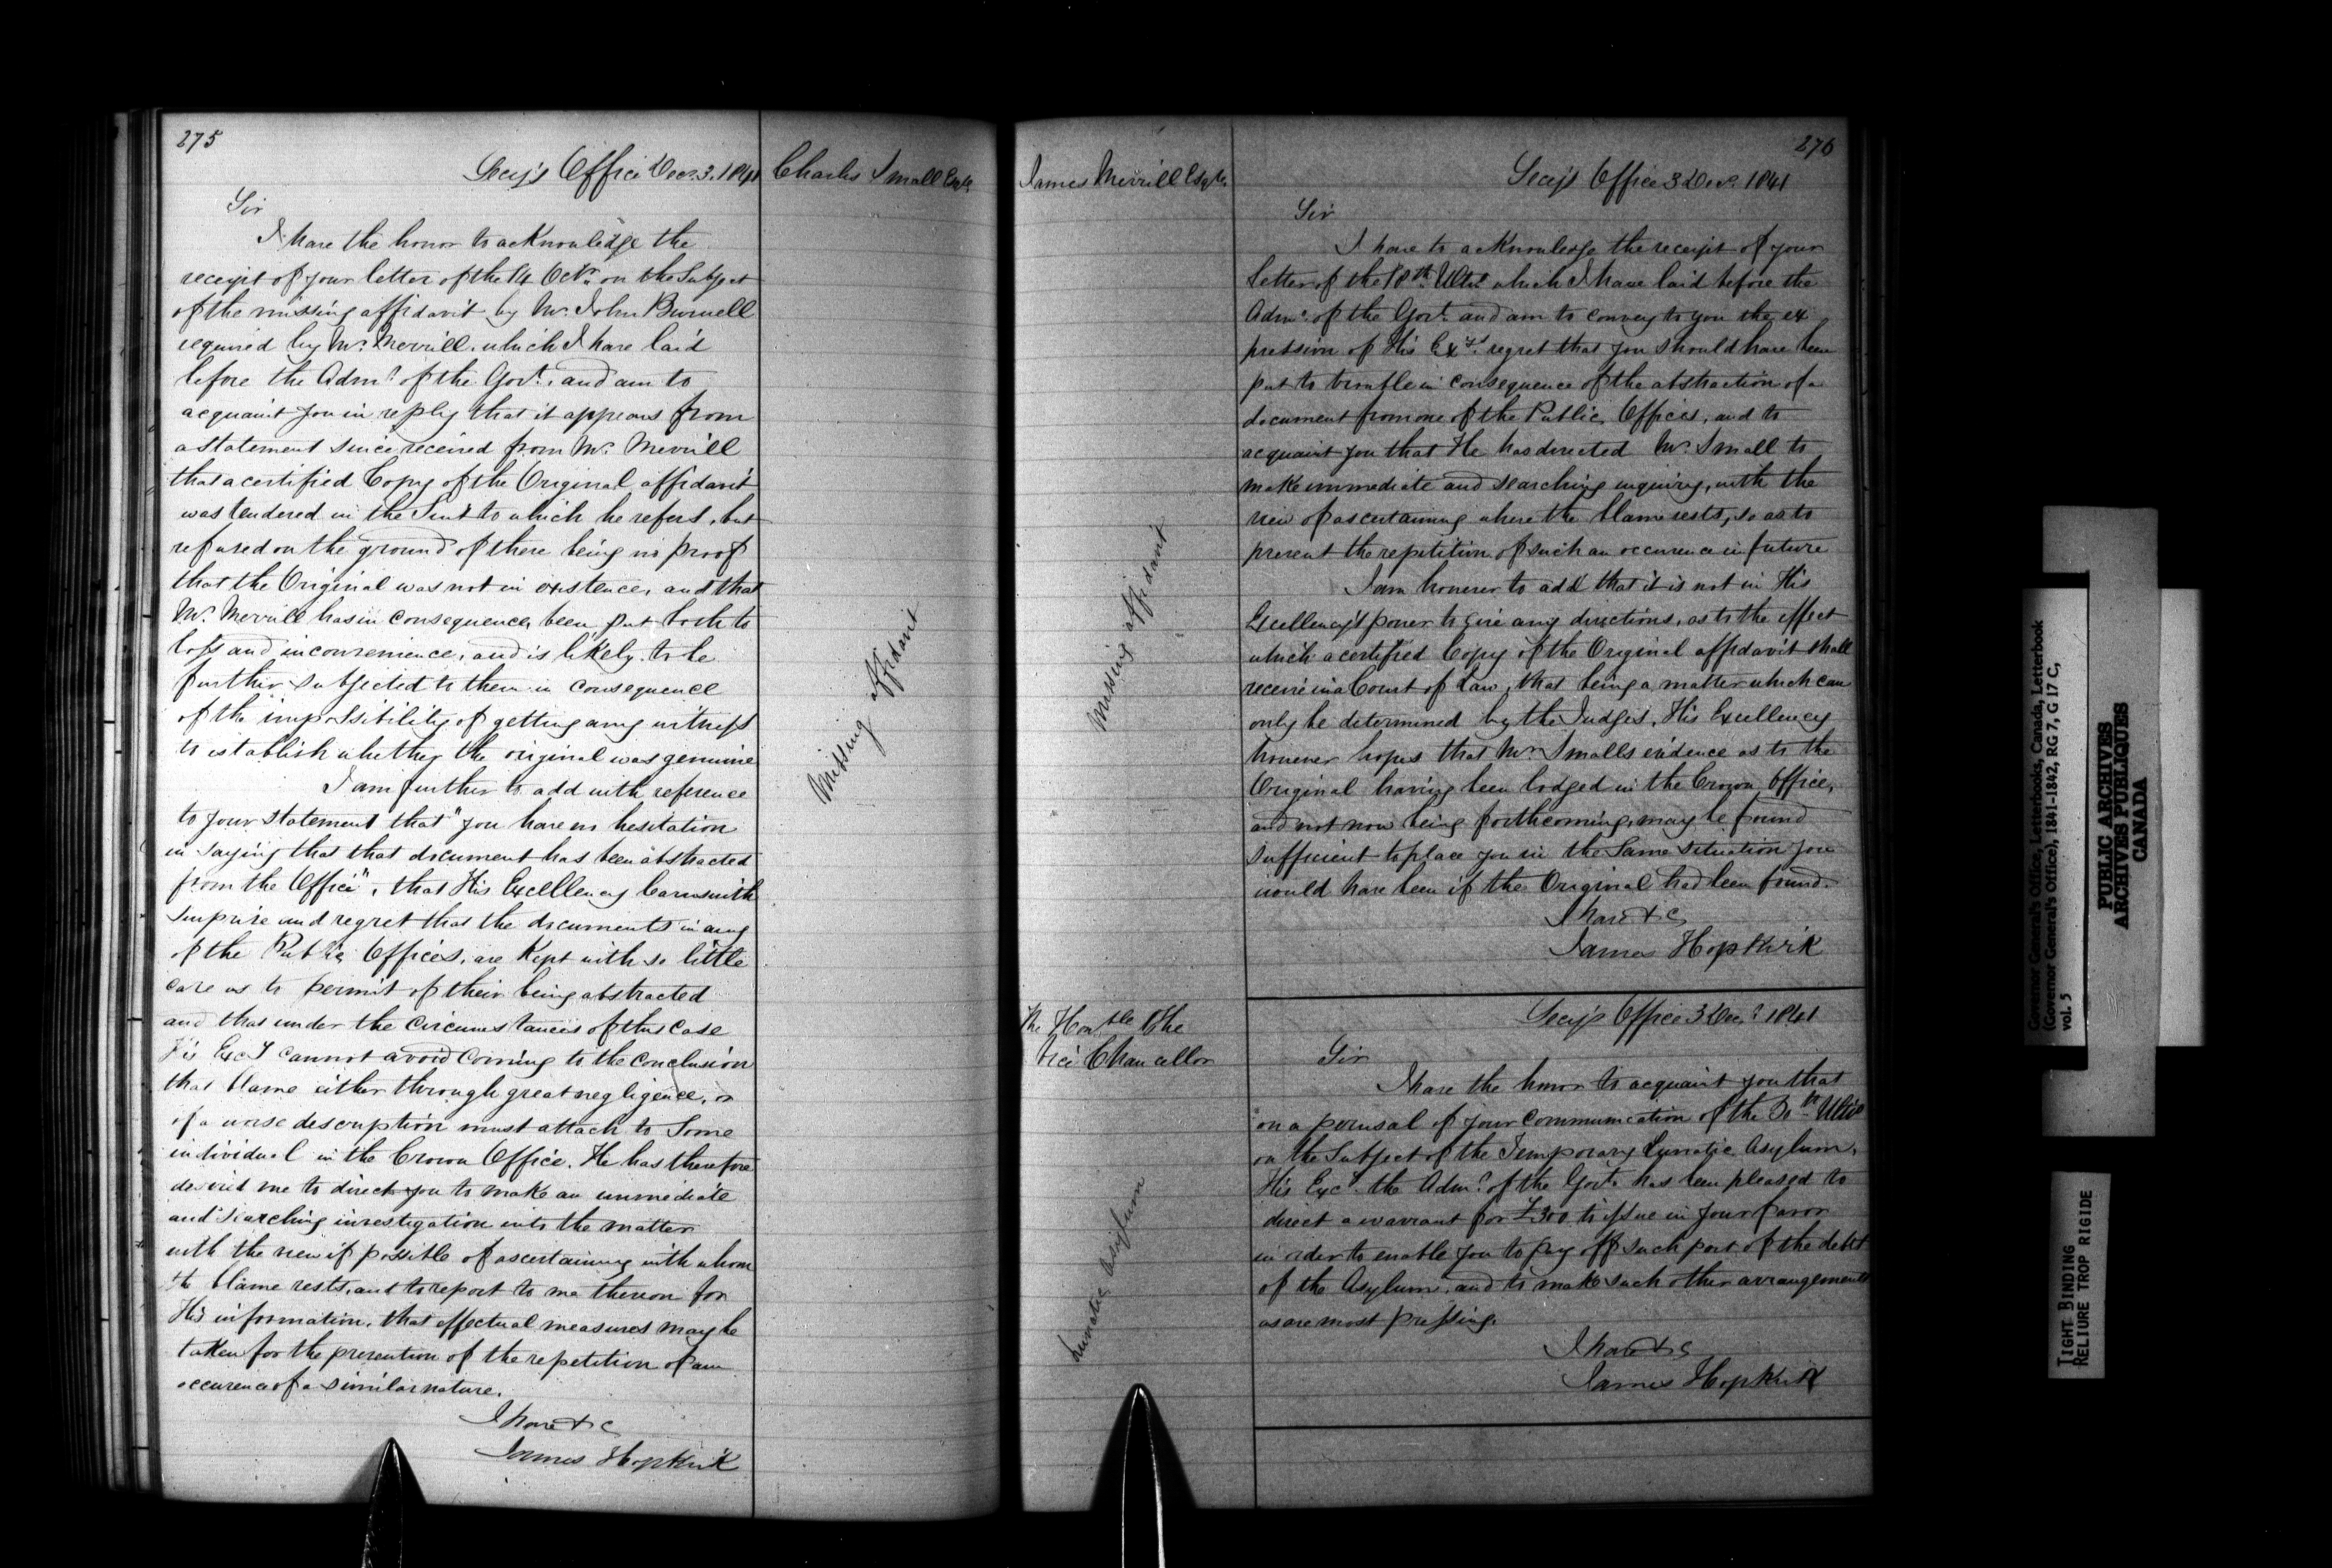 275
Secy's Office Decr. 3. 1841
Charles Small Esqre.
Sir
I have the honor to acknowledge the
receipt of your letter of the 14 Octr. on the Subject
of the missing affidavit by Mr. John Burwell
required by Mr. Merrill. which I have laid
before the Admr. of the Govt. and am to
acquaint you in reply that it appears from
a statement since received from Mr. Merrill
that a certified Copy of the Original affidavit
was tendered in the Suit to which he refers, but
refused on the ground of there being no proof
that the Original was not in existence, and that
Mr. Merrill has in consequence, been put both to
loss and inconvenience, and is likely to be
further subjected to them in consequence
of the impossibility of getting any witness
to establish whether the original was genuine
I am further to add with reference
to your statement that "you have no hesitation
in saying that that document has been abstracted
from the Office", that His Excellency learns with
surprise and regret that the documents in any
of the Public Offices, are Kept with so little
care as to permit of their being abstracted
and that under the circumstances of this case
His Excy cannot avoid coming to the conclusion
that blame either through great negligence, or
of a worse description must attach to Some
individual in the Crown Office. He has therefore
desired me to direct you to make an immediate
and searching investigation into the matter
with the view if possible of ascertaining with whom
the blame rests, and to report to me thereon for
His information, that effectual measures may be
taken for the prevention of the repetition of an
occurence of a similar nature.
I have &c
James Hopkirk
Missing affidavit
276
James Merrill Esqre.
Secy's Office 3 Decr. 1841
Sir
I have to acknowledge the receipt of your
Letter of the 18th. Ulto. which I have laid before the
Admr. of the Govt. and am to convey to you the ex
pression of His Exy's. regret that you should have been
put to trouble in consequence of the abstraction of a
document from one of the Public Offices, and to
acquaint you that He has directed Mr. Small to
make immediate and searching inquiry, with the
view of ascertaining where the blame rests, so as to
prevent the repetition of such an occurence in future
I am however to add that it is not in His
Excellency's power to give any directions, as to the effect
which a certified Copy of the Original affidavit shall
receive in a Court of Law, that being a matter which can
only be determined by the Judges. His Excellency
however hopes that Mr. Smalls evidence as to the
Original having been lodged in the Crown Office,
and not now being forthcoming, may be found
sufficient to place you in the Same situation you
would have been if the Original had been found.
I have &c
James Hopkirk
Missing affidavit
The Honble. The
Vice Chancellor
Secy's Office 3 Decr. 1841
Sir
I have the honor to acquaint you that
on a perusal of your communication of the 30th Ulto
on the Subject of the Temporary Lunatic Asylum,
His Excy. the Admr. of the Govt. has been pleased to
direct a warrant for £300 to issue in your favor
in order to enable you to pay off such part of the debt
of the Asylum, and to make such other arrangements
as are most pressing.
I have &c
James Hopkirk
Lunatic Asylum
Governor General's Office, Letterbooks, Canada, Letterbook
(Governor General's Office), 1841-1842, RG 7, G 17 C,
vol. 5
PUBLIC ARCHIVES
ARCHIVES PUBLIQUES
CANADA
TIGHT BINDING
RELIURE TROP RIGIDE